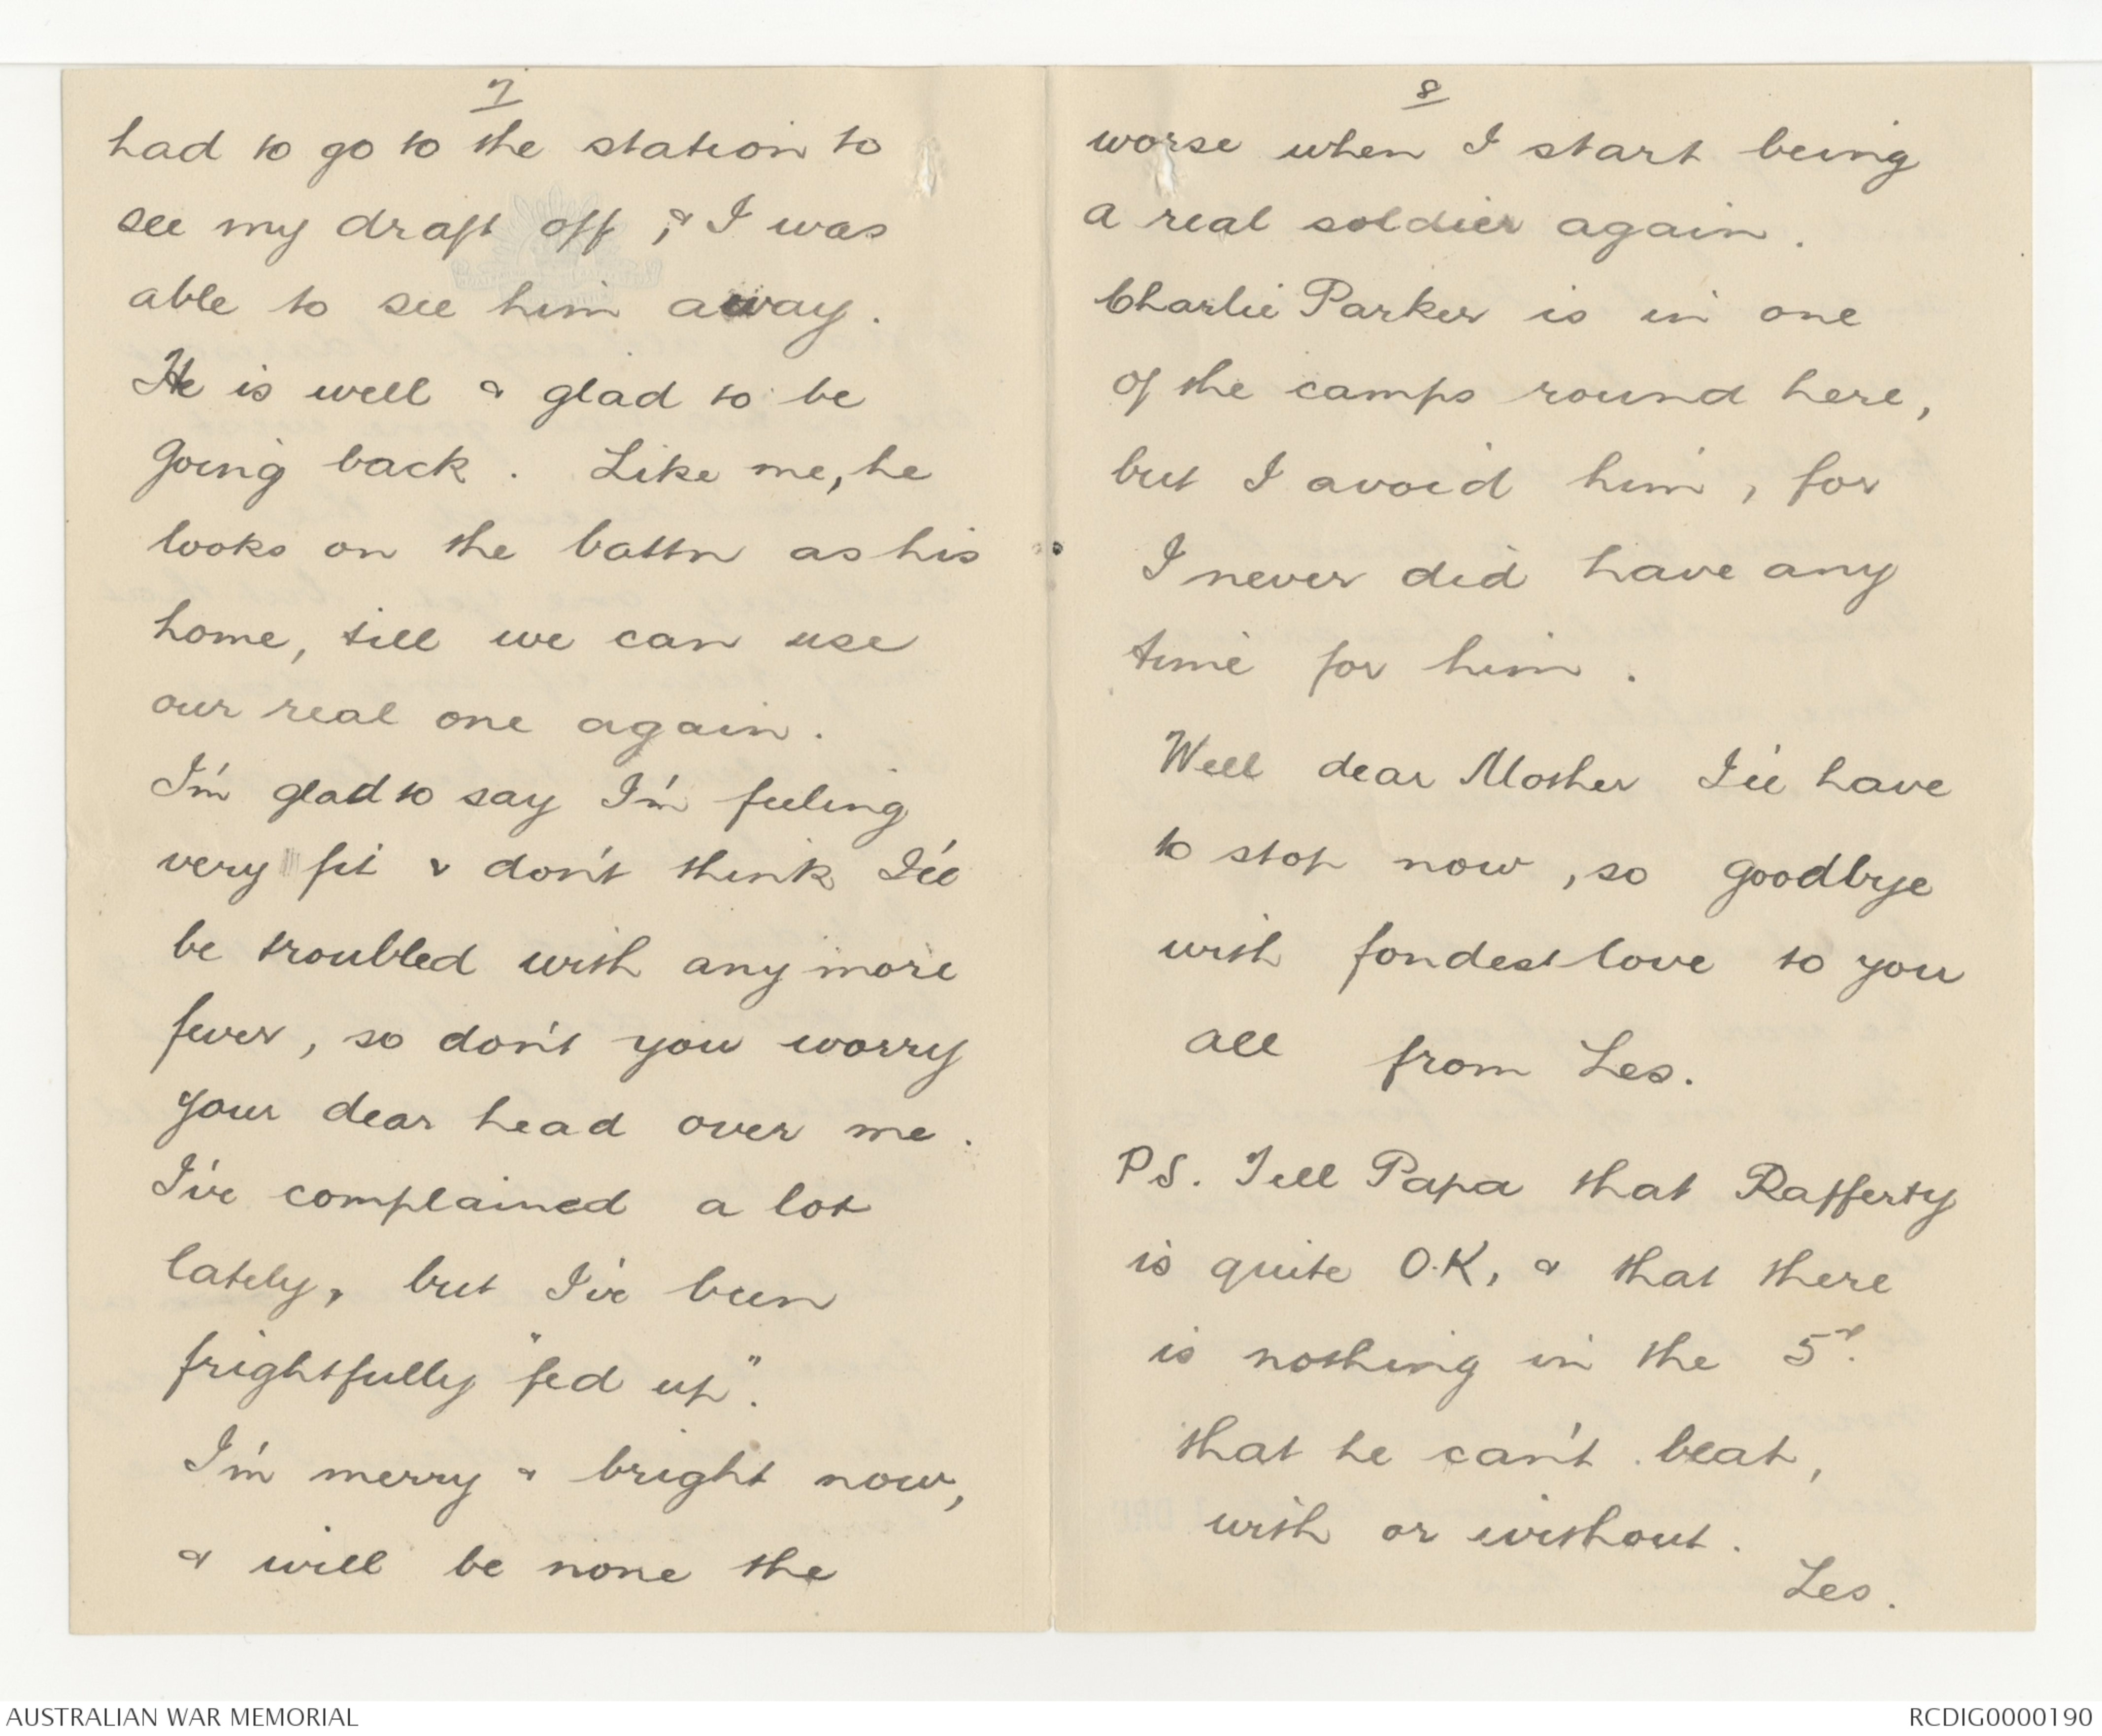 7
had to go to the station to
see my draft off, & I was
able to see him away.
He is well & glad to be
going back. Like me, he
looks on the battn as his
home, till we can use
our real one again.
I'm glad to say I'm feeling
very fit & don't think I'll
be troubled with any more
fever, so don't you worry
your dear head over me.
I've complained a lot
lately, but I've been
frightfully "fed up".
I'm merry & bright now,
& will be none the
8
worse when I start being
a real soldier again.
Charlie Parker is in one
of the camps round here,
but I avoid him, for
I never did have any
time for him.
Well dear Mother I'll have
to stop now, so goodbye
with fondest love to you
all from Les.
PS. Tell Papa that Rafferty
is quite O.K, & that there
is nothing in the 5
that he can't beat,
with or without.
Les.
AUSTRALIAN WAR MEMORIAL
RCDIG0000190